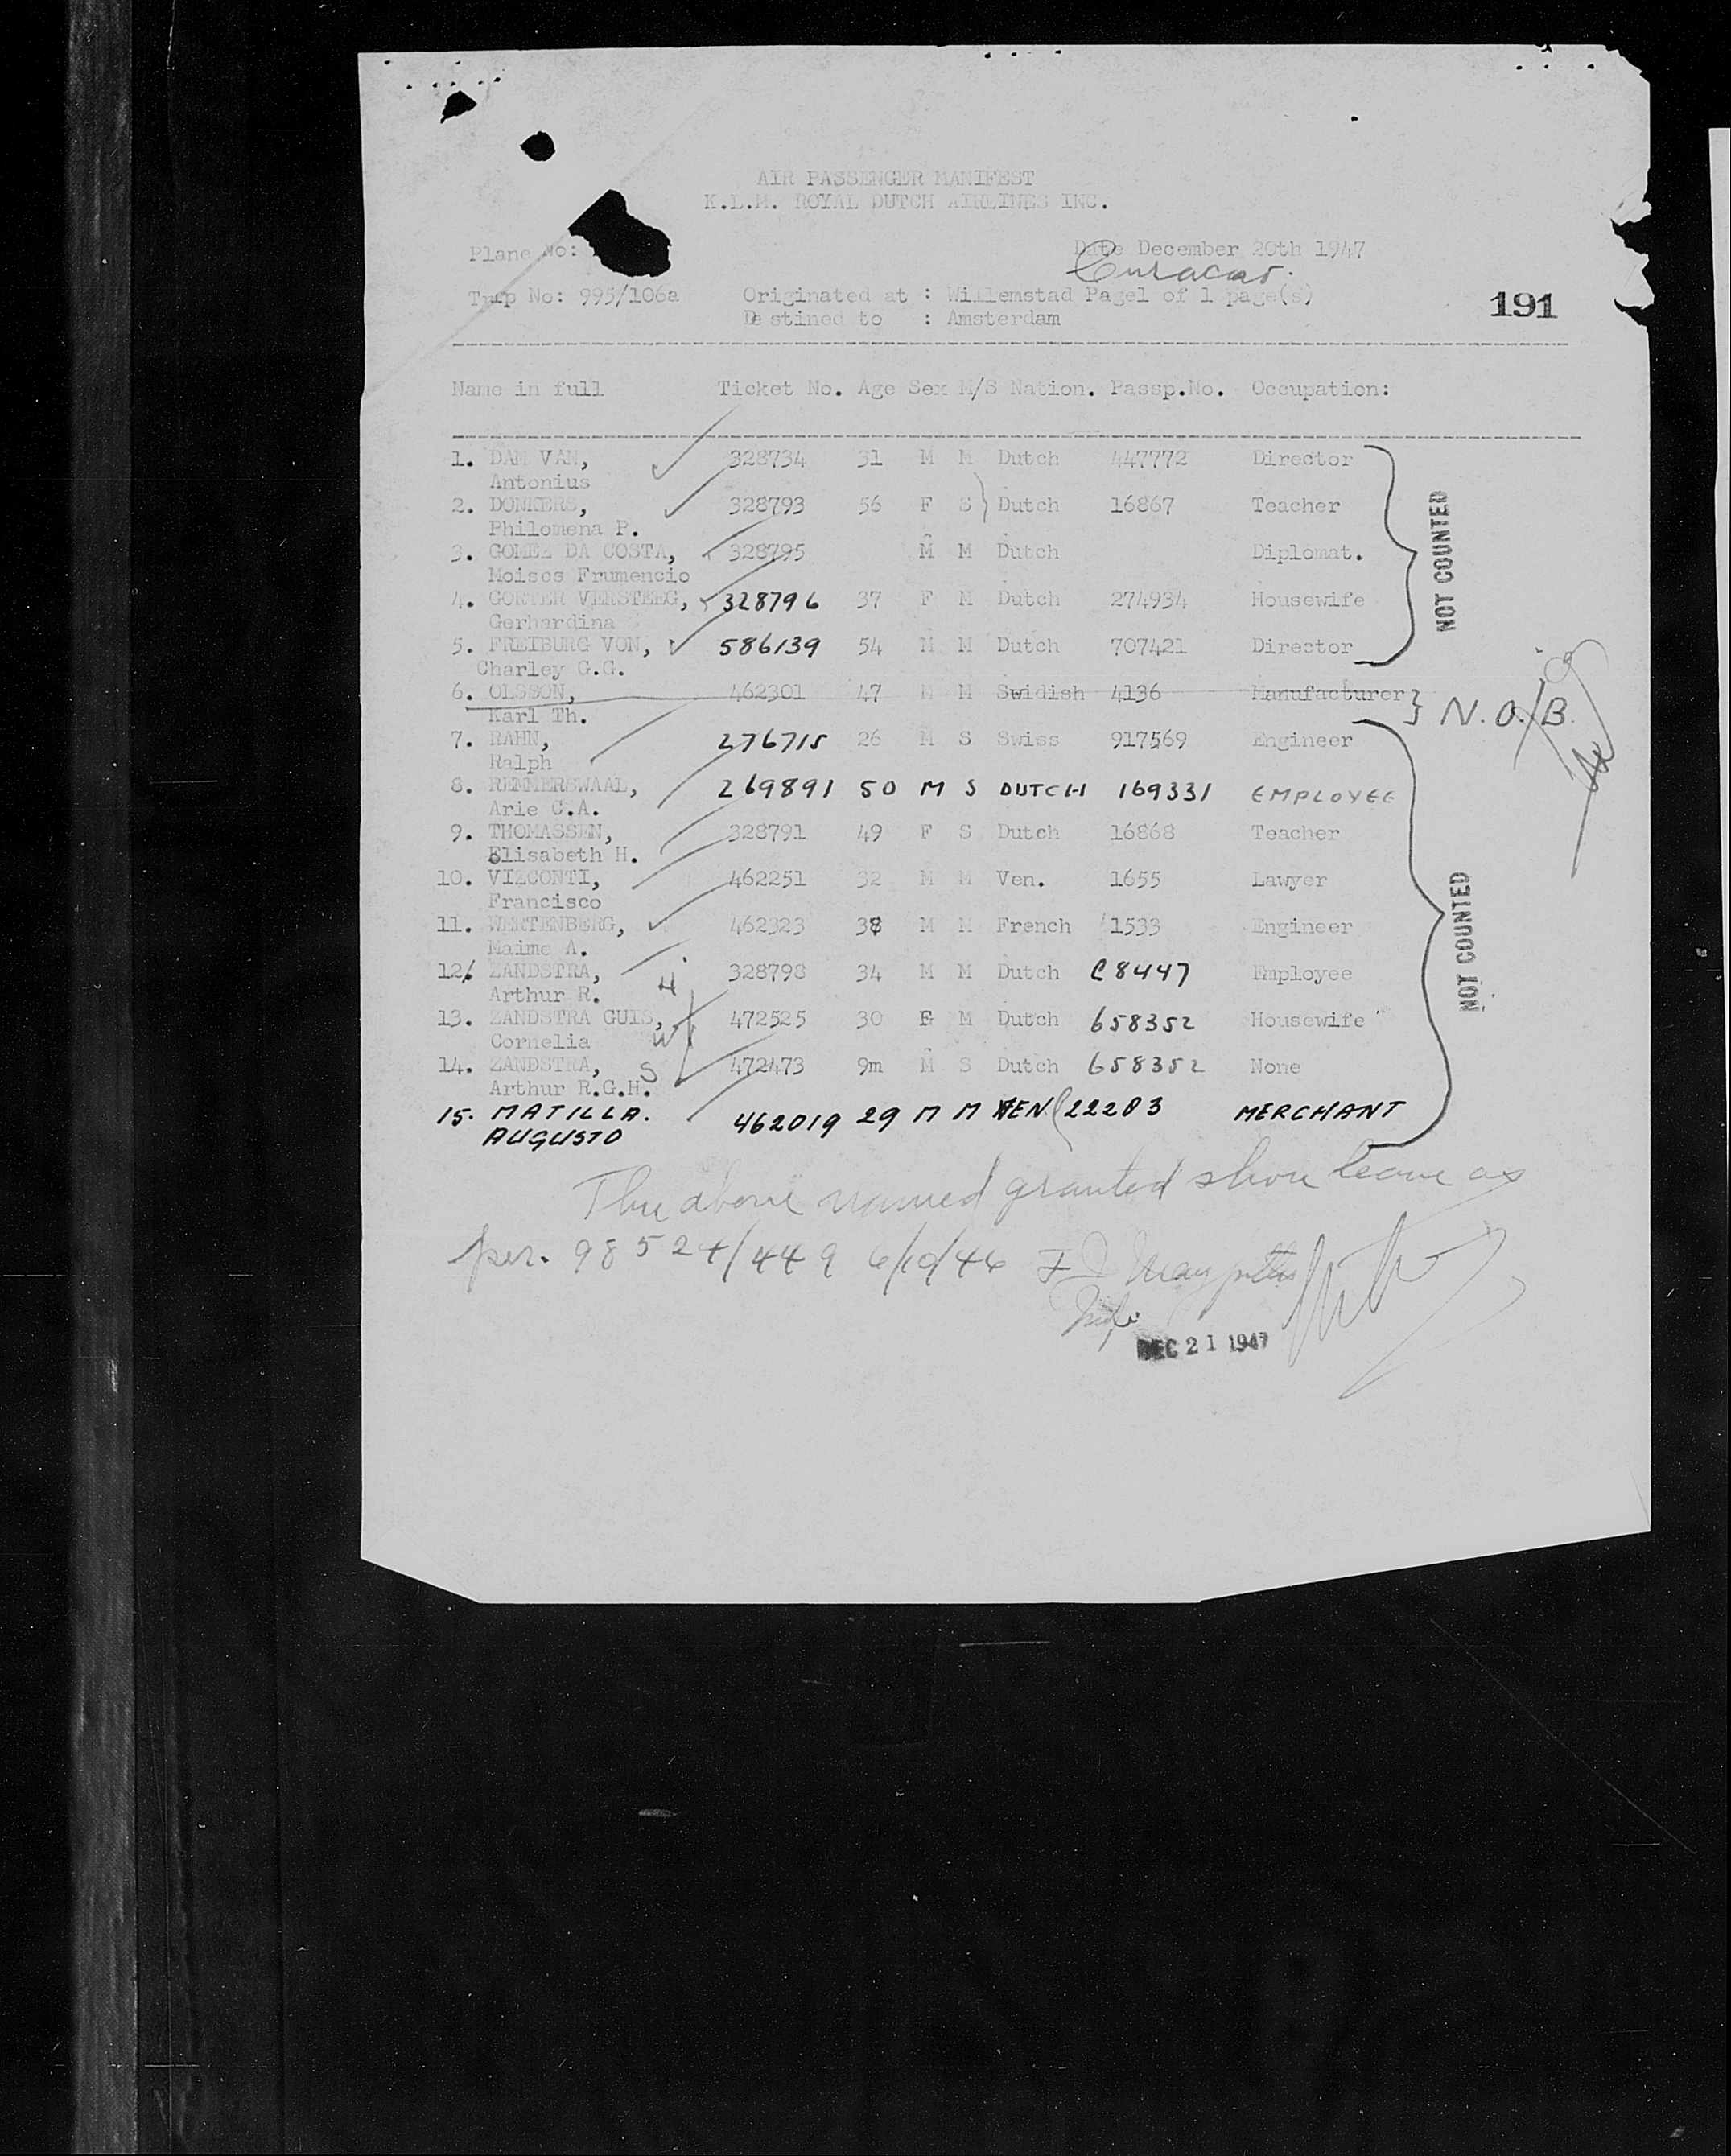 AIR PASSENGER MANIFEST
K.L.M. ROYAL DUTCH AIRLINES INC.
Plane No:
Date December 20th 1947
Curacao.
Trip No: 995/106a
Originated at : Willemstad Page1 of 1 page(s)
191
Destined to : Amsterdam
Name in full Ticket No. Age Sex M/S Nation. Passp.No. Occupation:
1. DAM VAN, 328734 31 M M Dutch 447772 Director
Antonius
2. DONKERS, 328793 56 F S Dutch 16867 Teacher
Philomena P.
NOT COUNTED
3. GOMEZ DA COSTA, 328795 M M Dutch Diplomat.
Moises Frumencio
4. GORTER VERSTEEG, 328796 37 F M Dutch 274934 Housewife
Gerhardina
5. FREIBURG VON, 586139 54 M M Dutch 707421 Director
Charley G.G.
6. OLSSON, 462301 47 M M Swidish 4136 Manufacturer N.O.B.
Karl Th.
7. RAHN, 276715 26 M S Swiss 917569 Engineer
Ralph
8. REMMERSWAAL, 269891 50 M S DUTCH 169331 EMPLOYEE
Arie C.A.
9. THOMASSEN, 328791 49 F S Dutch 16868 Teacher
Elisabeth H.
10. VIZCONTI, 462251 32 M M Ven. 1655 Lawyer
Francisco
NOT COUNTED
11. WERTENBERG, 462323 38 M M French 1533 Engineer
Maime A.
12. ZANDSTRA, 328798 34 M M Dutch C8447 Employee
Arthur R. H
13. ZANDSTRA GUIS, 472525 30 F M Dutch 658352 Housewife
Cornelia W
14. ZANDSTRA, S 472473 9m M S Dutch 658352 None
Arthur R.G.H.
15. MATILLA. 462019 29 M M VEN. 22203 MERCHANT
AUGUSTO
The above named granted shore leave as
per. 98524/449 6/10/46
DEC 21 1947